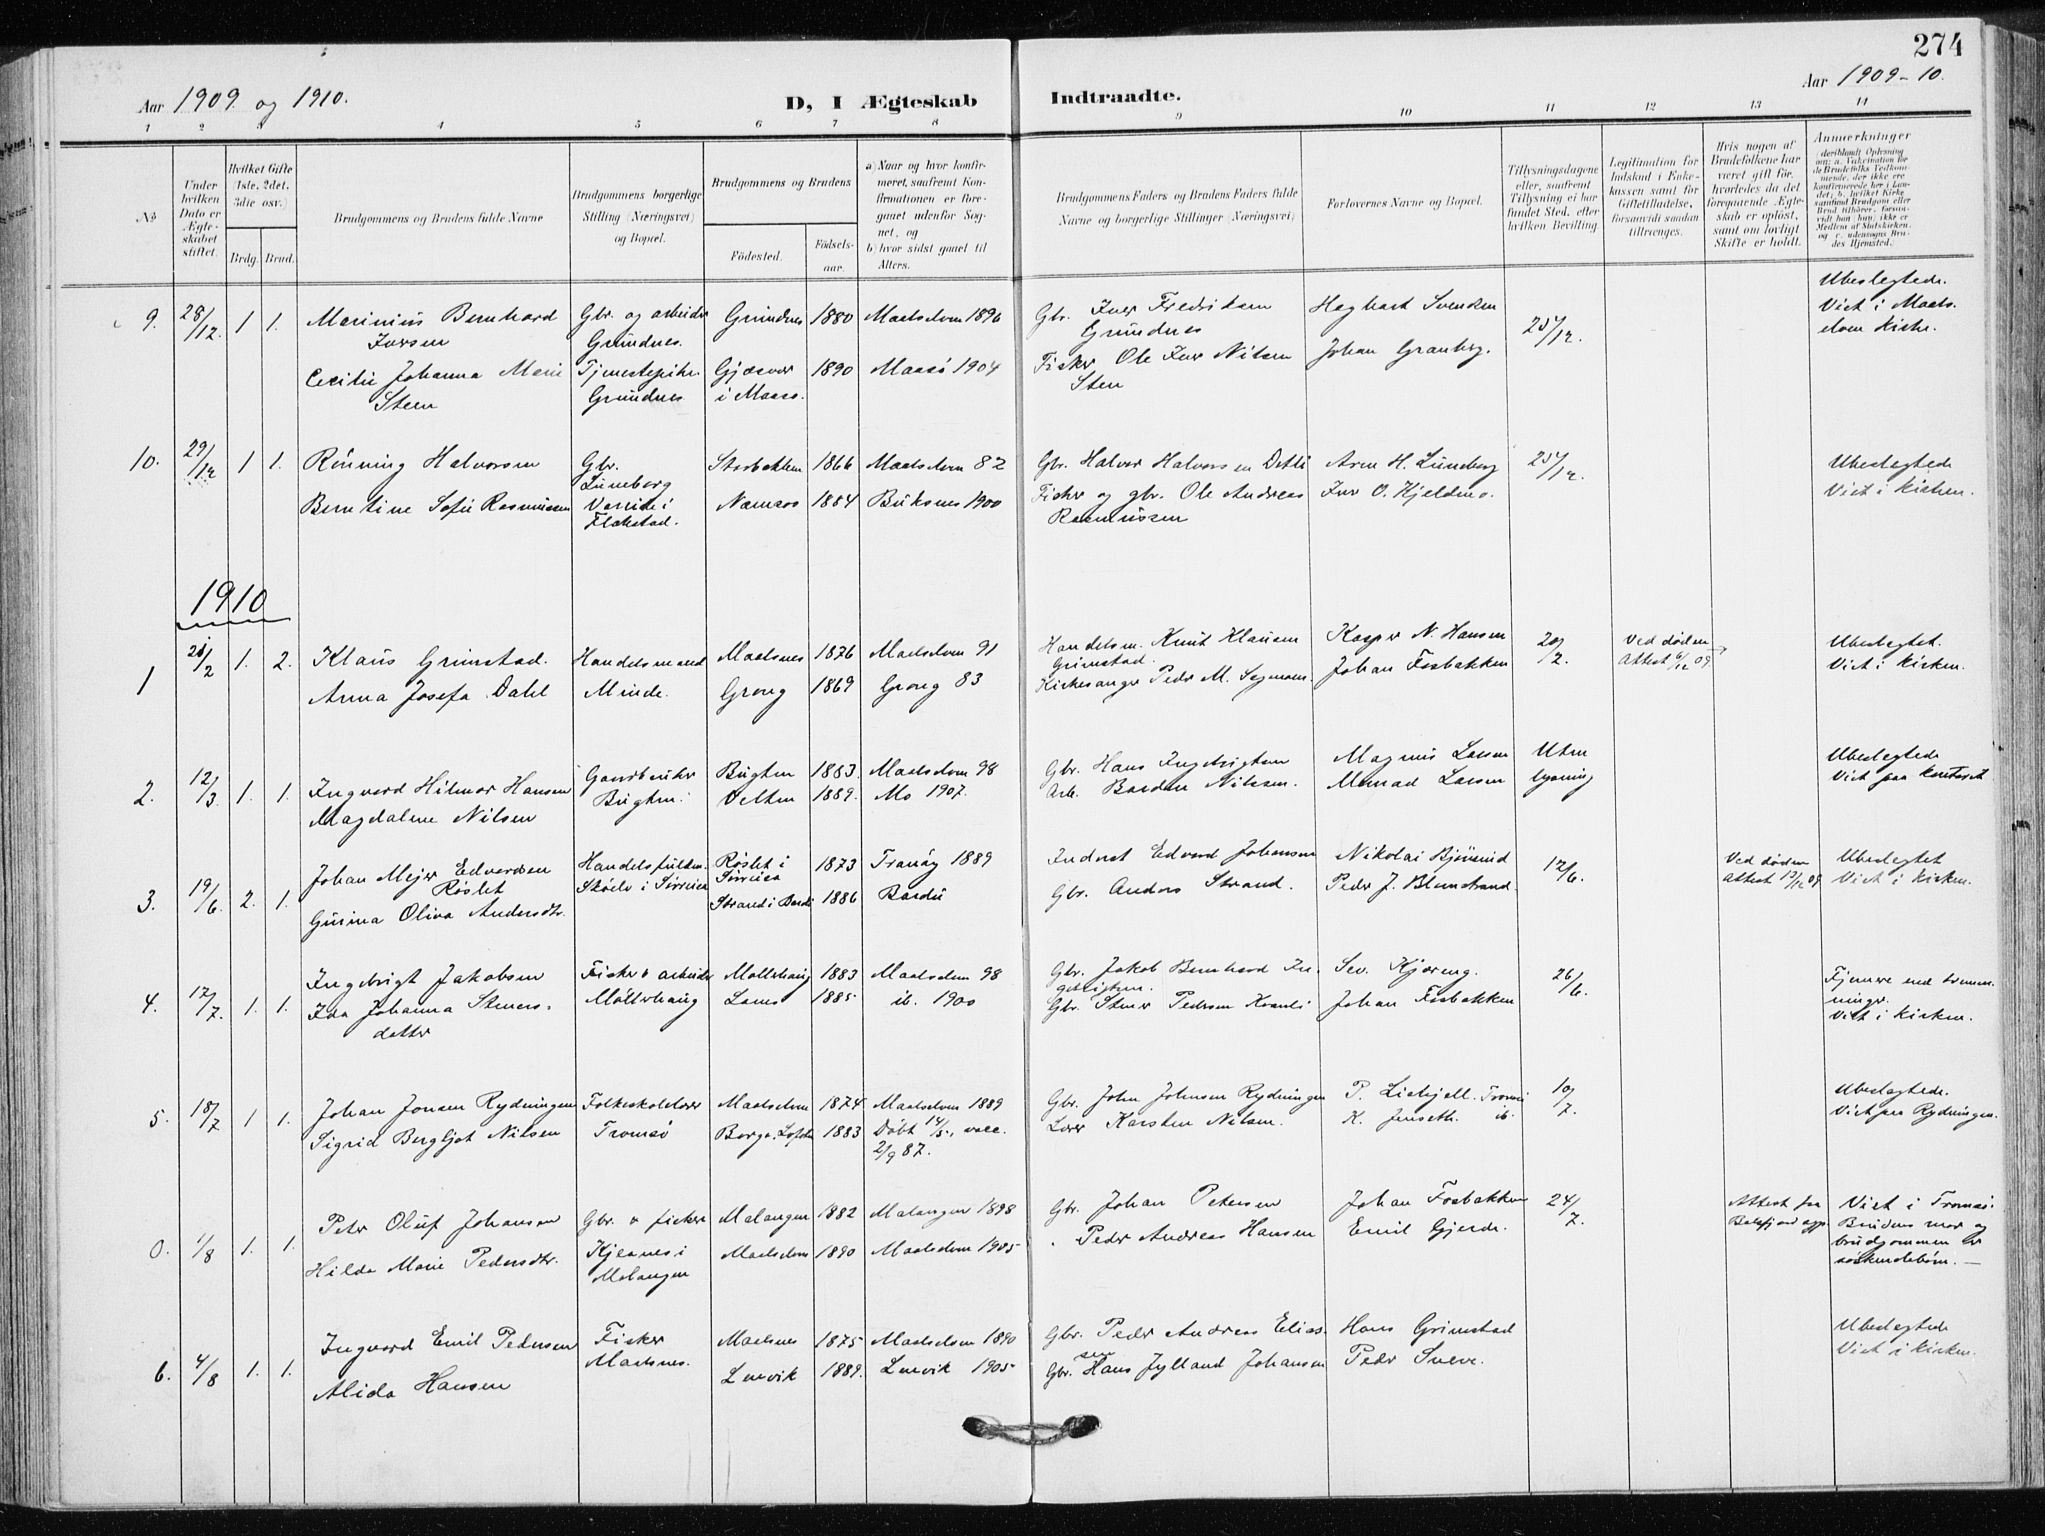 274
Aar 1909 og 1910.
D, I Ægteskab Indtraadte.
Aar 1909-10.
1 2 3 4 5 6 7 8 9 10 11 12 13 14
No
Under hvilken Dato er Ægteskabet stiftet.
Hvilket Gifte (1ste, 2det, 3die osv.)
Brdg. Brud.
Brudgommens og Brudens fulde Navne
Brudgommens borgerlige Stilling (Næringsvei) og Bopæl.
Brudgommens og Brudens
Födested. Födselsaar.
a) Naar og hvor konfirmeret, saafremt Konfirmationen er foregaaet udenfor Sognet, og
b) hvor sidst gaaet til Alters.
Brudgommens Faders og Brudens Faders fulde Navne og borgerlige Stillinger (Næringsvei)
Forlovernes Navne og Bopæl.
Tillysningsdagene eller, saafremt Tillysning ei har fundet Sted, efter hvilken Bevilling.
Legitimation for Indskud i Enkekassen samt for Giftetilladelse, forsaavidt saadan tiltrænges.
Hvis nogen af Brudefolkene har været gift för, hvorledes da det foregaaende Ægteskab er oplöst, samt om lovligt Skifte er holdt.
Anmerkninger
(deriblandt Oplysning om: a. Vakcination for de Brudefolks Vedkommende, der ikke ere konfirmerede her i Landet; b. hvilket Kirkesamfund Brudgom eller Brud tilhörer, forsaavidt han, hun, ikke er Medlem af Statskirken, og c. udensogns Brudes Hjemsted.)
9. 28/12. 1 1. Marinius Bernhard Iversen
Gbr. og arbeider Grundnes.
Grundnes 1880 Maalselven 1896
Gbr. Iver Fredriksen Grundnes
Hagbart Svendsen
25/12.
Ubeslegtede.
Viet i Maalselven kirke.
Cecilie Johanna Marie Steen
Tjenestepike Grundnes
Gjæsvær i Maasø. 1890 Maasö 1904
Fisker Ole Iver Nilsen Sten
Johan Granberg.
10. 29/12 1 1. Rönning Halvorsen
Gbr. Luneborg
1866 Maalselven 82
Gbr. Halvor Halvorsen Detli
Arne H. Luneborg
25/12.
Ubeslegtede
Viet i kirken.
Berntine Sofie Rasmussen
Flakstad.
Namsos 1884 Buksnes 1900
Fisker og gbr. Ole Andreas Rasmussen
Iver O. Kjeldmo.
1910
1 2 1. 2. Klaus Grimstad.
Handelsmand Minde.
Maalsnes 1876 Maalselven 91
Handelsm. Knut Klausen Grimstad.
Kasper N. Hansen
20/2.
Ved døden
Attest 6/12 09.
Ubeslegtet.
Viet i kirken.
Anna Josefa Dahl
Grong 1869 Grong 83
Kirkesanger Peder M.
Johan Fosbakken
2. 12/3. 1. 1. Ingvard Hilmar Hansen
Gaardbruker Bugten.
Bugten 1883. Maalselven 98
Gbr. Hans Ingebrigtsen
Magnus Larsen
Uten lysning
Ubeslegtede
Viet paa kontoret
Magdalene Nilsen
1889. Mo 1907.
Arb. Nilssen.
Larsen
3. 19/6. 2. 1. Johan Mejer Edvardsen Röslet
Skøelv i Sørreisa
Röslet i Sørreisa 1873 Tranöy 1889
Inderst Edvard Johansen
Nikolai
12/6.
Ved døden
Attest 09
Ubeslegtet
Viet i kirken.
Gurina Oliva Andersdtr.
Strand i Bardu 1886 Bardu
Gbr. Anders Strand.
Peder J. Blomstrand.
4. 17/7. 1. 1. Ingebrigt Jakobsen
Fisker & arbeider Möllerhaug
Möllerhaug 1883 Maalselven 98
Gbr. Jakob Bernhard Ingebrigtsen.
Sev. Kjæreng.
26/6.
Fjernere end tremenninger.
Viet i kirken.
Ida Johanna Steinersdatter
1885. ib. 1900
Gbr. Steiner Pedersen
Johan Fosbakken
5. 18/7 1 1. Johan Jonsen Rydningen
Folkeskolelærer Tromsö
Maalselven 1874 Maalselven 1889
Gbr. John Johnsen Rydningen
P. Liekjell. Tromsö
10/7.
Ubeslegtede.
Viet paa Rydningen.
Sigrid Bergljot Nilsen
Borge, Lofoten 1883 Döbt 14/5, vacc. 2/9 87.
Lærer Karsten Nilsen.
K. Jenseth. ib.
0. 1/8 1. 1. Peter Oluf Johansen
Gbr. & fisker Kjernes i Malangen
Malangen 1882 Malangen 1898
Gbr. Johan Petersen
Johan Fosbakken
24/7.
Attest fra Balsfjord
Viet i Tromsö.
Brudens mor og brudgommen er söskendebörn. —
Hilda Marie Pedersdtr.
Maalselven 1890 Maalselven 1905
" Peder Andreas Hansen
Emil Gjerde.
6. 4/8 1. 1. Ingvard Emil Pedersen
Fisker Maalsnes.
Maalsnes 1875 Maalselven 1890
Gbr. Peder Andreas Eliassen
Hans Grimstad
Ubeslegtede
Viet i kirken.
Alida Hansen
Lenvik 1889. Lenvik 1905
Gbr. Hans Jylland Johansen
Peder